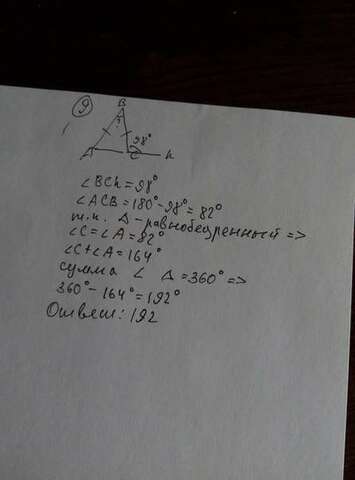 9
B
?
98°
A
C
h
∠BCh = 98°
∠ACB = 180° - 98° = 82°
т.к. Δ - равнобедренный =>
∠C = ∠A = 82°
∠C + ∠A = 164°
сумма ∠ Δ = 360° =>
360° - 164° = 192°
Ответ: 192